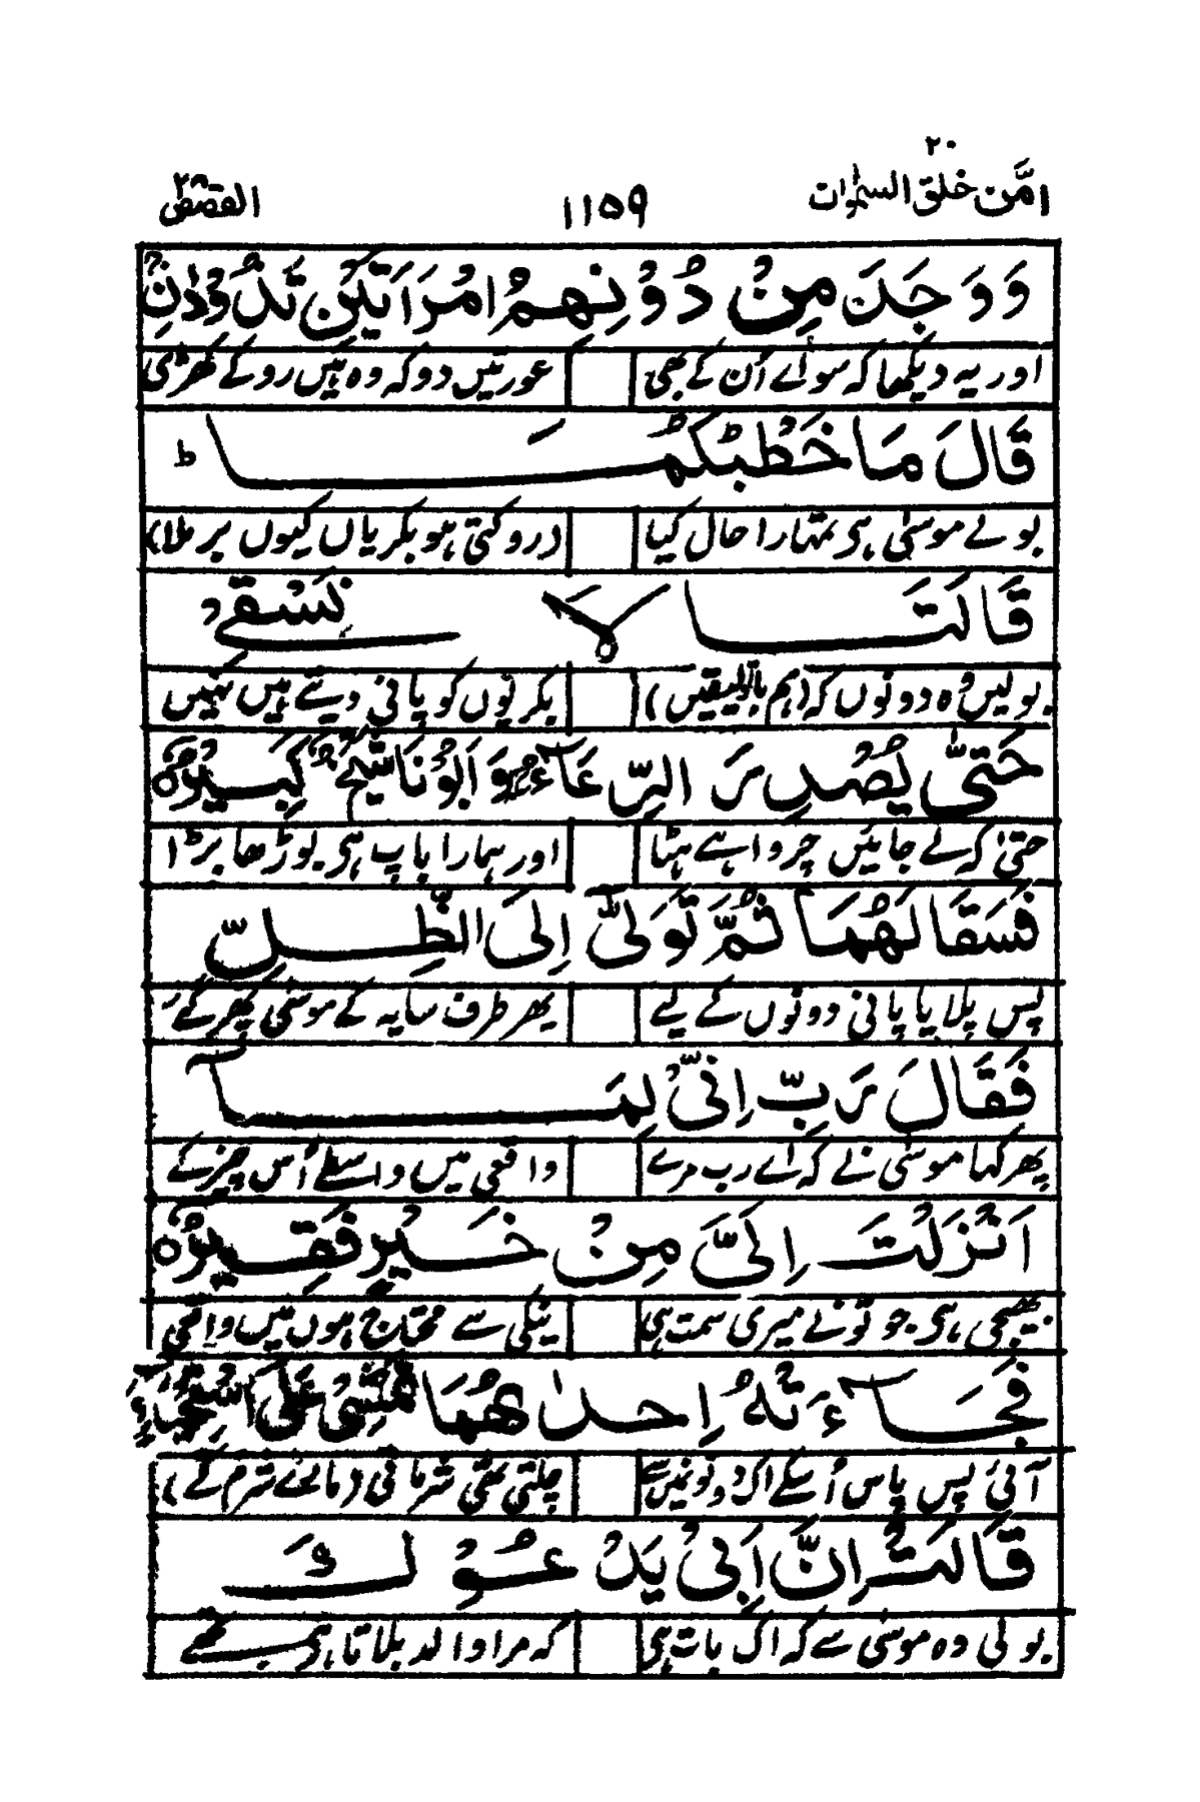 امّن خلق السمٰوات ۲۰ ۱۱۵۹ القصص ۲۸
وَوَجَدَ مِنْ دُوْنِهِمُ امْرَاَتَيْنِ تَذُوْدٰنِ ۚ
اور یہ دیکھا کہ سوائے اُن کے بھی عورتیں دو کہ وہ ہیں روکے کھڑی
قَالَ مَا خَطْبُكُمَا ؕ
بولے موسٰی ہے تمہارا حال کیا (روکتی ہو بکریاں کیوں بر ملا)
قَالَتَا لَا نَسْقِىْ
بولیں وہ دونوں کہ (ہم بالیقیں) بکریوں کو پانی دیتے ہیں نہیں
حَتّٰى يُصْدِرَ الرِّعَآءُ وَاَبُوْنَا شَيْخٌ كَبِيْرٌ ۝
حتیٰ کہ لے جائیں چرواہے ہٹا اور ہمارا باپ ہے بوڑھا بڑا
فَسَقٰا لَهُمَا ثُمَّ تَوَلّٰى اِلَى الظِّلِّ
پس پلایا پانی دونوں کے لیے پھر طرف سایہ کے موسٰی پھر گئے
فَقَالَ رَبِّ اِنِّىْ لِمَاۤ
پھر کہا موسٰی نے کہ اے رب مرے واقعی میں واسطے اُس چیز کے
اَنْزَلْتَ اِلَىَّ مِنْ خَيْرٍ فَقِيْرٌ ۝
بھیجی ہے جو تونے میری سمت ہی نیکی سے محتاج ہوں میں واقعی
فَجَآءَتْهُ اِحْدٰىهُمَا تَمْشِىْ عَلَى اسْتِحْيَآءٍ
آئی پس پاس اُسکے اک دونوں میں سے چلتی تھی شرماتی (مارے شرم کے)
قَالَتْ اِنَّ اَبِىْ يَدْعُوْكَ
بولی وہ موسٰی سے کہ اک بات ہے کہ مرا والد بلاتا ہے تجھے